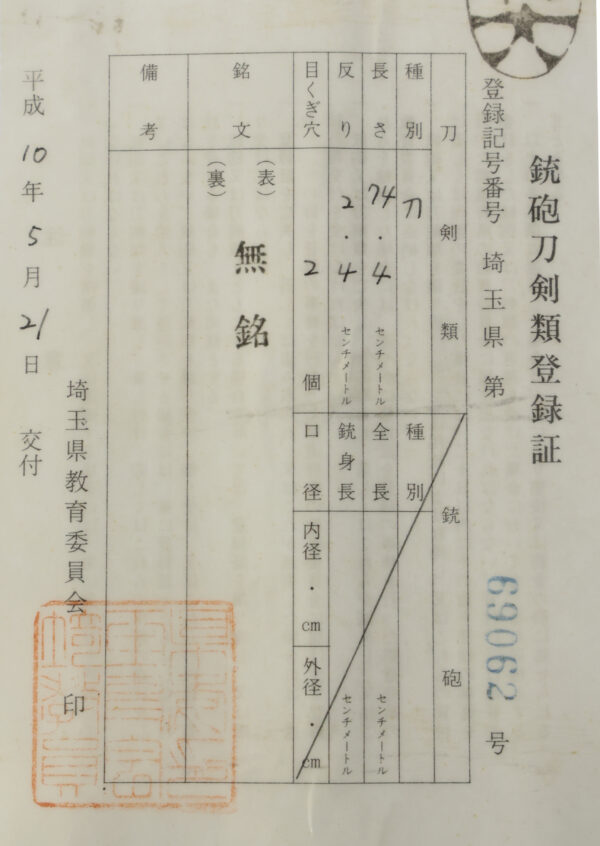 銃砲刀剣類登録証
登録記号番号 埼玉県 第 69062 号
刀剣類
種別 刀
長さ 74.4 センチメートル
反り 2.4 センチメートル
目くぎ穴 2 個
銘文 (表) 無銘
(裏)
備考
銃砲
種別
全長 センチメートル
銃身長 センチメートル
口径 内径 . cm 外径 . cm
埼玉県教育委員会 印
平成10年5月21日 交付